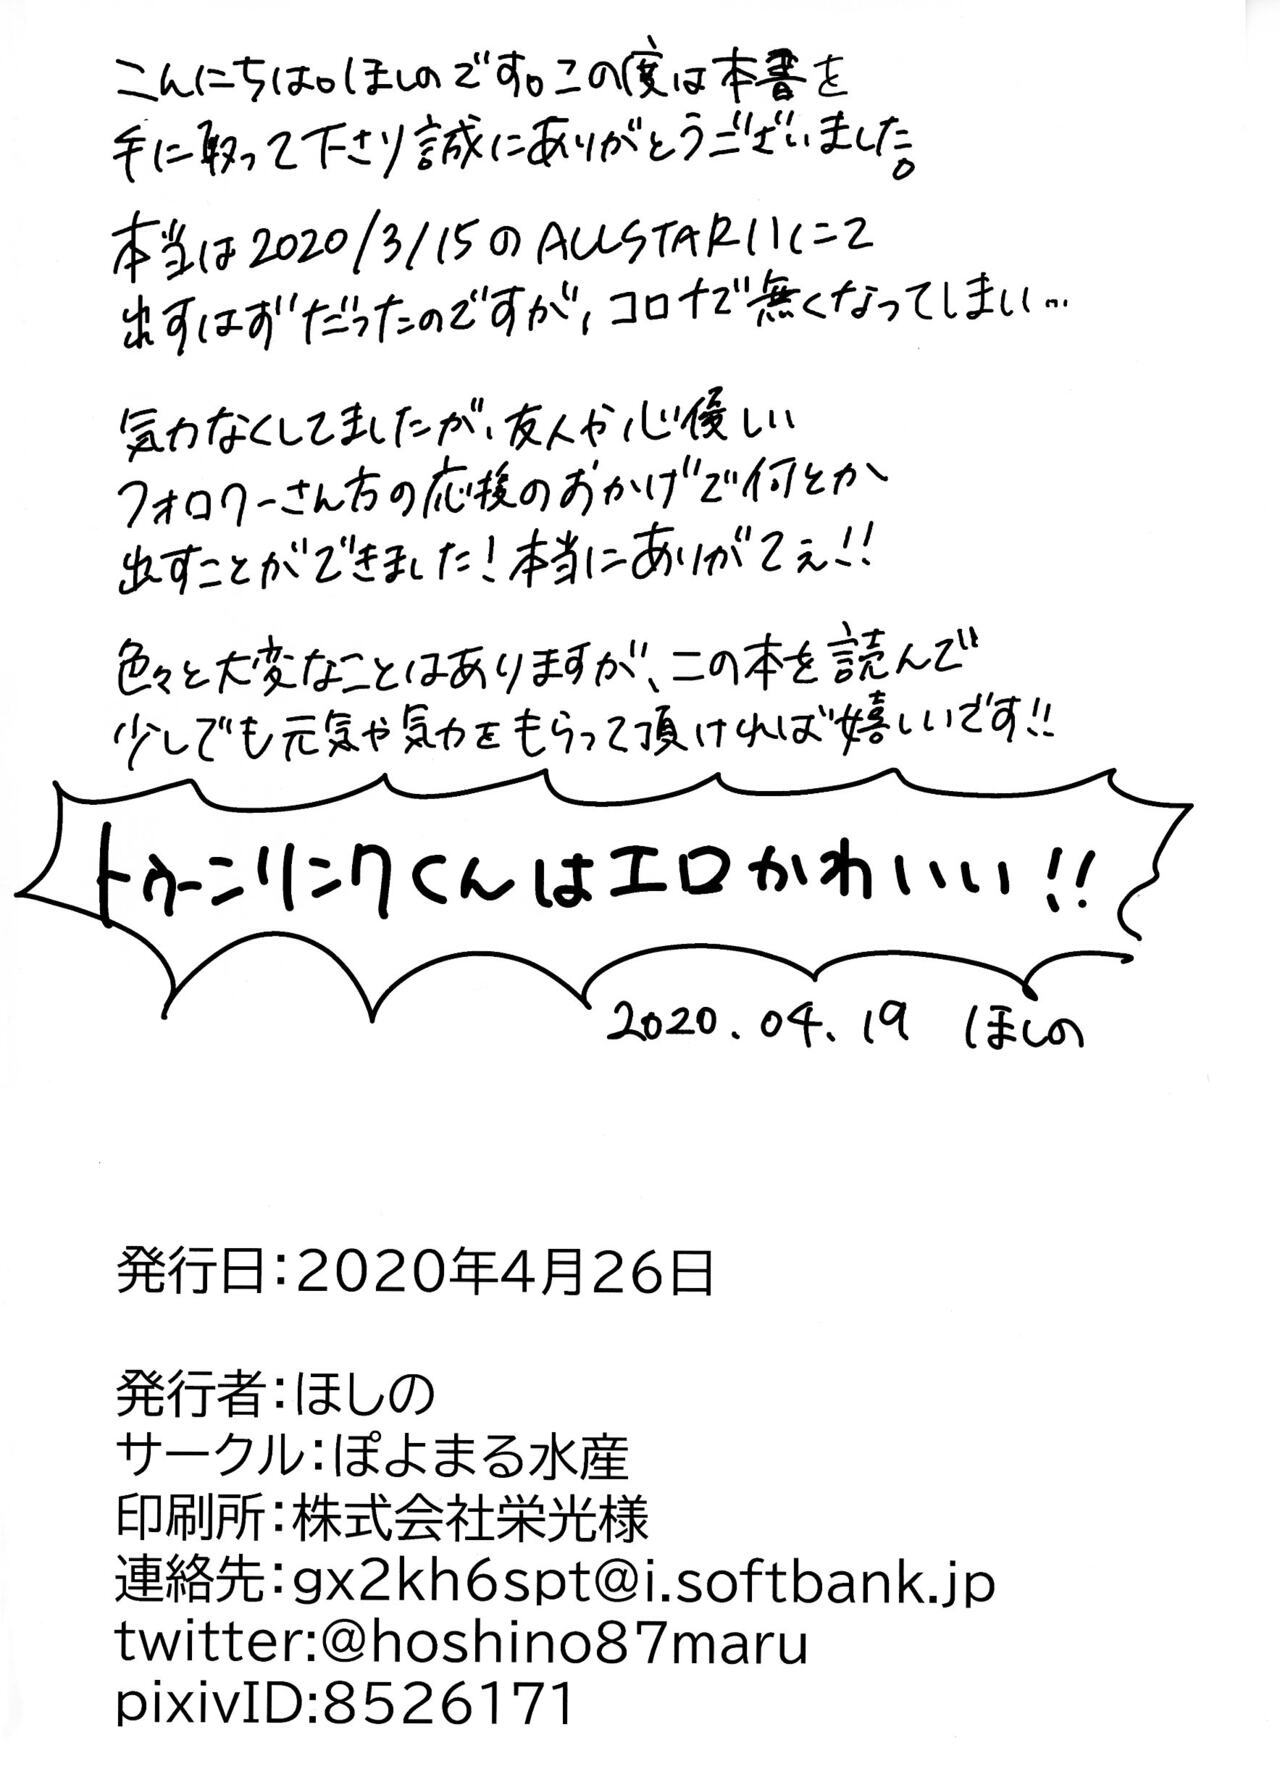 こんにちは。ほしのです。この度は本書を
手に取って下さり誠にありがとうございました。
本当は2020/3/15のALLSTAR11にて
出すはずだったのですが、コロナで無くなってしまい…
気力なくしてましたが、友人や心優しい
フォロワーさん方の応援のおかげで何とか
出すことができました！本当にありがてぇ!!
色々と大変なことはありますが、この本を読んで
少しでも元気や気力をもらって頂ければ嬉しいです!!
トゥーンリンクくんはエロかわいい!!
2020.04.19 ほしの
発行日:2020年4月26日
発行者:ほしの
サークル:ぽよまる水産
印刷所:株式会社栄光様
連絡先:gx2kh6spt@i.softbank.jp
twitter:@hoshino87maru
pixivID:8526171